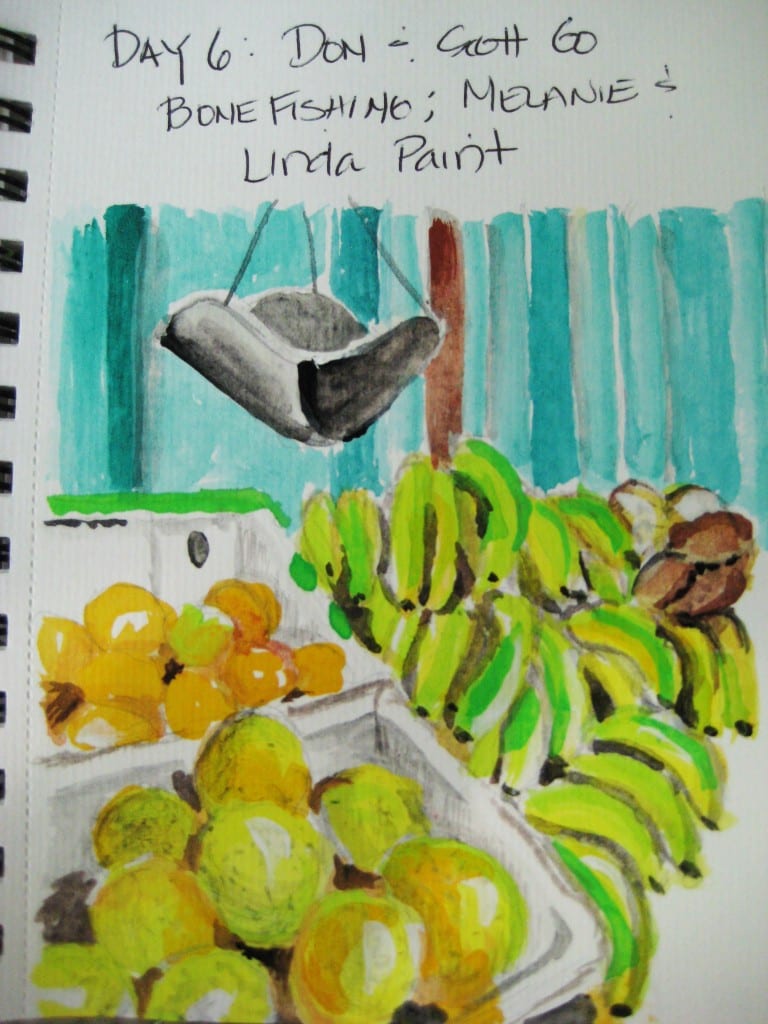 DAY 6: DON & SCOTT GO
BONEFISHING; MELANIE &
LINDA PAINT